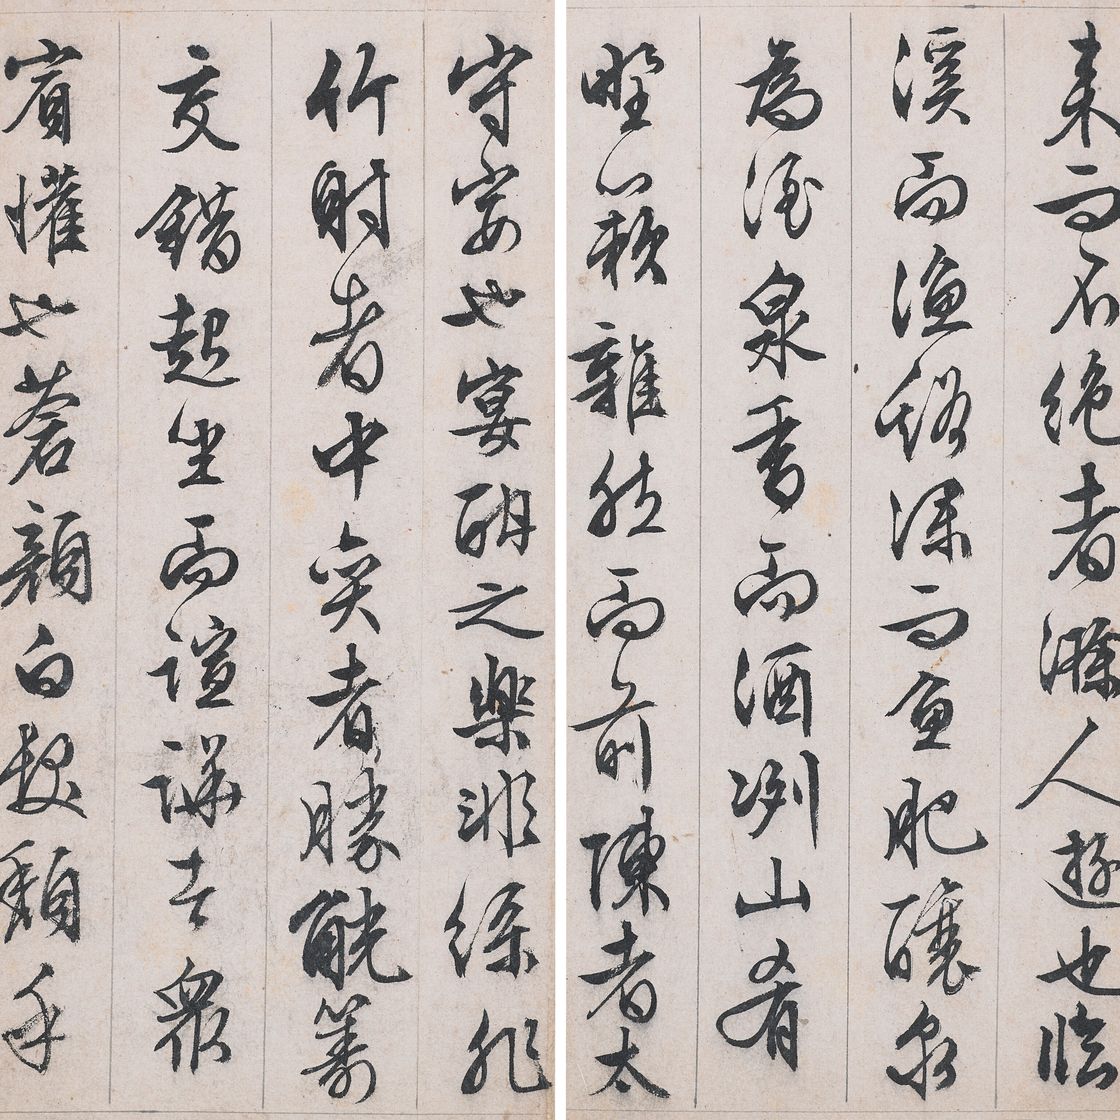 来而不絕者滁人遊也臨
溪而漁谿深而魚肥釀泉
為酒泉香而酒冽山肴
野蔌雜然而前陳者太
守宴也宴酣之樂非絲非
竹射者中奕者勝觥籌
交錯起坐而諠譁者衆
賓懽也蒼顏白髮頹乎